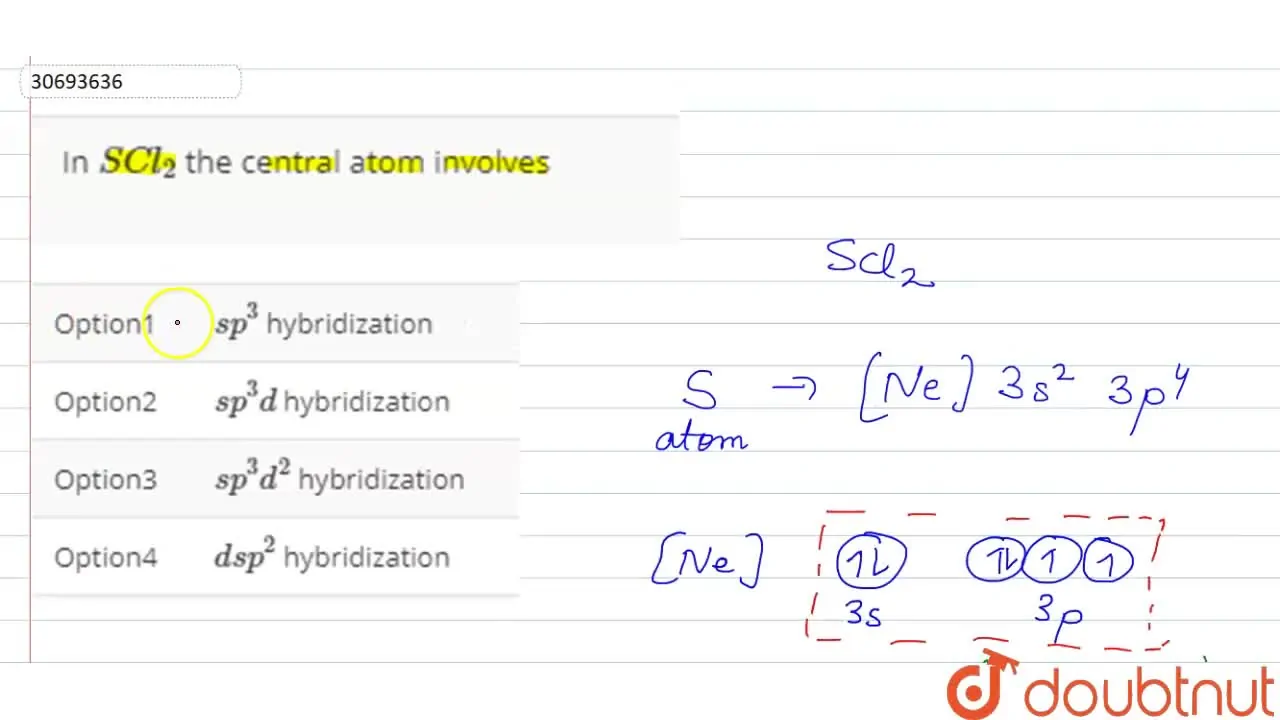 30693636
In SCl₂ the central atom involves
Option1 sp³ hybridization
Option2 sp³d hybridization
Option3 sp³d² hybridization
Option4 dsp² hybridization
Scl₂
S → [Ne] 3s² 3p⁴
atom
[Ne] ⇅ ⇅ ↑ ↑
3s 3p
doubtnut